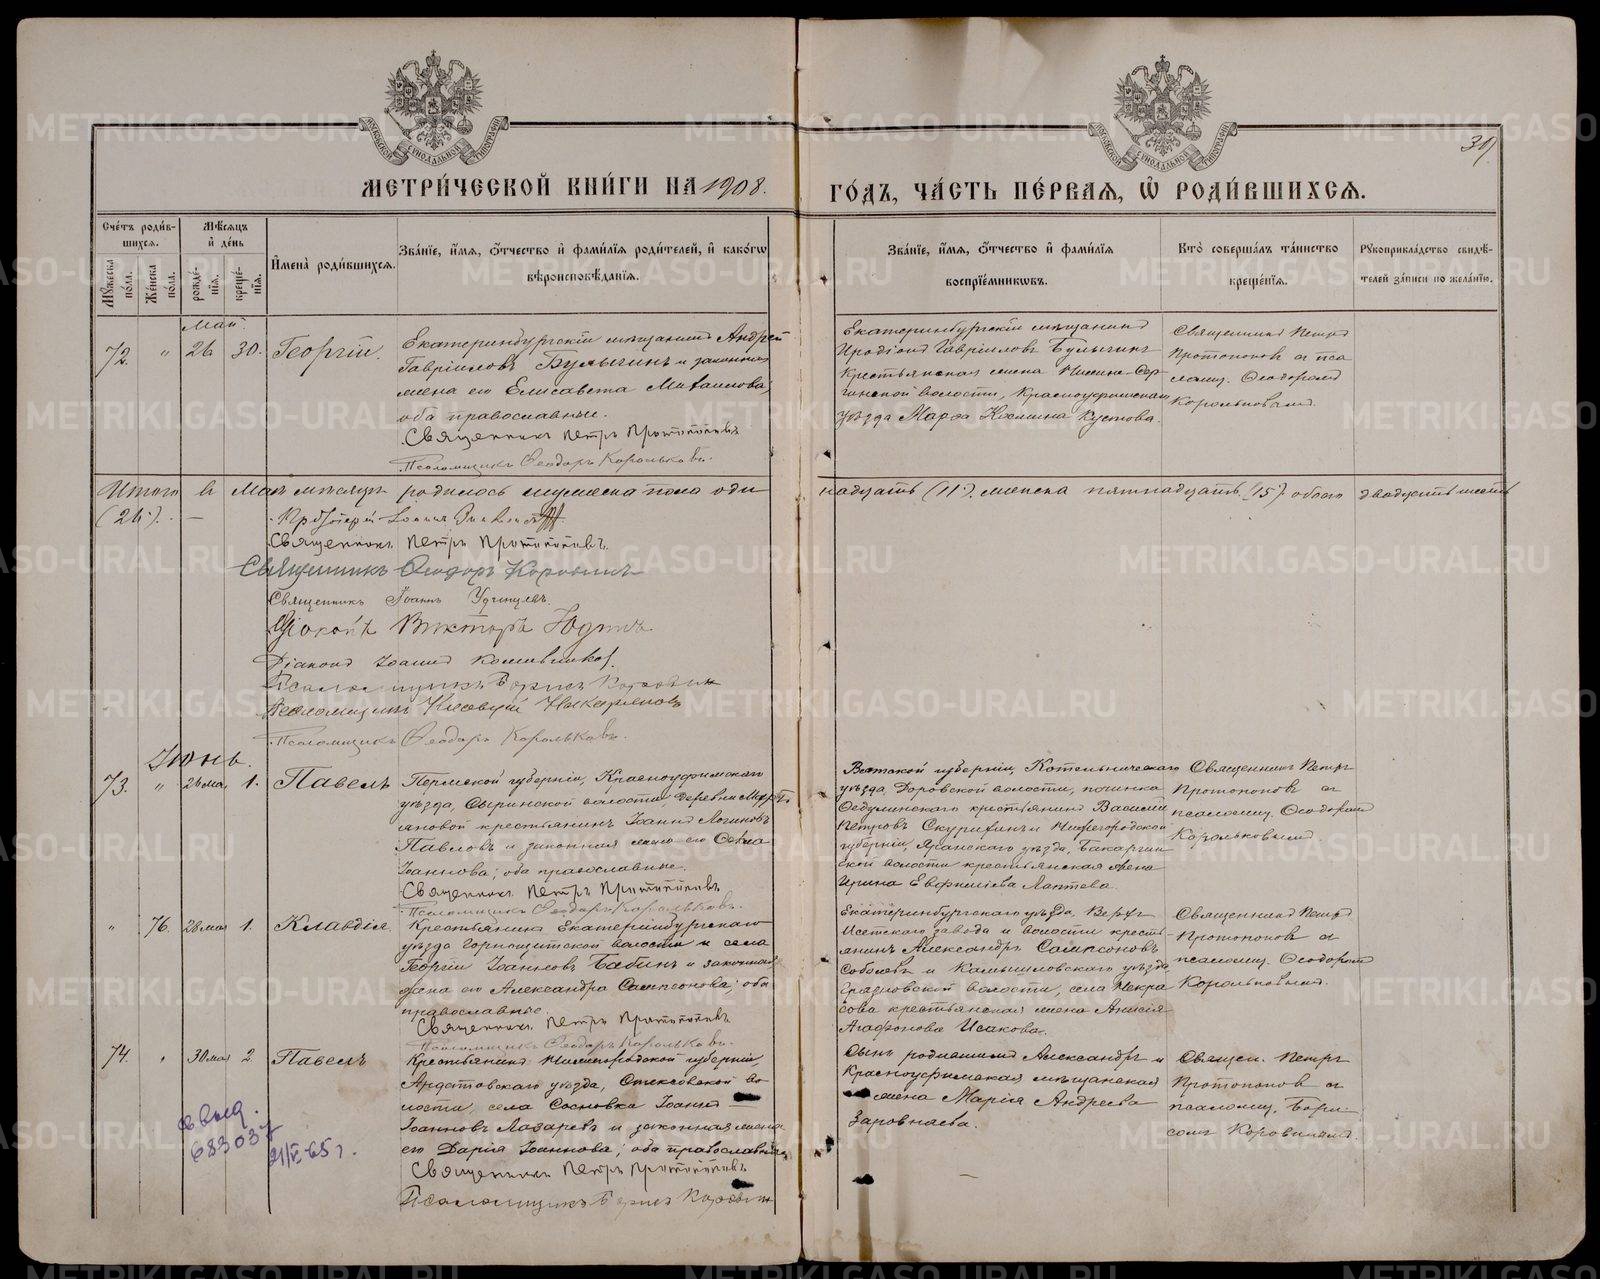 МЕТРИ́ЧЕСКОЙ КНИ́ГИ НА 1908.
ГО́ДЪ, ЧА́СТЬ ПЕ́РВАЯ, Ѡ҆ РОДИ́ВШИХСЯ.
39
Сче́тъ роди́в-
шихся.
Мꙋ́жеска по́ла.
Же́нска по́ла.
Мѣ́сяцъ
и҆ де́нь
рожде́-
нїя.
креще́-
нїя.
И҆мена̀ роди́вшихся.
Зва́нїе, и҆́мя, ѻ҆́тчество и҆ фами́лїя роди́телей, и҆ како́гѡ
вѣроисповѣ́данїя.
Зва́нїе, и҆́мя, ѻ҆́тчество и҆ фами́лїя
воспрїе́мникѡвъ.
Кто̀ соверша́лъ та́инство
креще́нїя.
Рꙋкоприкла́дство свидѣ́-
телей за́писи по жела́нїю.
Май.
72. " 26 30. Георгій.
Екатеринбургскій мѣщанинъ Андрей
Гавріиловъ Булычинъ и законная
жена его Елисавета Михаилова,
оба православные.
Священникъ Петръ Протопоповъ
Псаломщикъ Ѳеодоръ Корольковъ.
Екатеринбургскій мѣщанинъ
Иродіонъ Гавріиловъ Булычинъ
Крестьянская жена Нижне-Сер-
гинской волости, Красноуфимскаго
уѣзда Марѳа Козмина Кустова.
Священникъ Петръ
Протопоповъ съ пса
ломщ. Ѳеодоромъ
Корольковымъ.
Итого въ Маѣ мѣсяцѣ родилось мужеска пола оди
надцать (11). женска пятнадцать (15). обоего двадцать шесть
(26).
Протоіерей Іоаннъ
Священникъ Петръ Протопоповъ.
Священникъ Ѳеодоръ Коровинъ
Священникъ Іоаннъ
Діаконъ Викторъ Юдинъ
Діаконъ Іоаннъ
Псаломщикъ Борисъ Коровинъ
Псаломщикъ
Псаломщикъ Ѳеодоръ Корольковъ.
Іюнь.
73. " 26 мая 1. Павелъ
Пермской губерніи, Красноуфимскаго
уѣзда, Сыринской волости, деревни
яновой крестьянинъ Іоаннъ Логиновъ
Павловъ и законная жена его
Іоаннова; оба православные.
Священникъ Петръ Протопоповъ
Псаломщикъ Ѳеодоръ Корольковъ.
Вятской губерніи, Котельническаго
уѣзда, Доровской волости, починка
Ѳедулинскаго крестьянинъ Василій
Петровъ Скурихинъ и Нижегородской
губерніи,
ской волости крестьянская жена
Ирина Евфиміева Лаптева.
Священникъ Петръ
Протопоповъ съ
псаломщ. Ѳеодоромъ
Корольковымъ.
" 76. 28 мая 1. Клавдія.
Крестьянинъ Екатеринбургскаго
уѣзда Горнощитской волости и села
Георгій Іоанновъ Бабинъ и законная
жена его Александра Сампсонова; оба
православные.
Священникъ Петръ Протопоповъ
Псаломщикъ Ѳеодоръ Корольковъ.
Екатеринбургскаго уѣзда, Верхъ
Исетскаго завода и волости кресть-
янинъ Александръ Сампсоновъ
Соболевъ и Камышловскаго уѣзда,
Грязновской волости, села Некра
сова крестьянская жена Анисія
Агафонова Исакова.
Священникъ Петръ
Протопоповъ съ
псаломщ. Ѳеодоромъ
Корольковымъ.
74. " 30 мая 2. Павелъ
Крестьянинъ Нижегородской губерніи,
Ардатовскаго уѣзда, во
лости, села Сосновка Іоаннъ
Іоанновъ Лазаревъ и законная жена
его Дарія Іоаннова; оба православные.
Священникъ Петръ Протопоповъ
Псаломщикъ Борисъ Коровинъ
Сынъ родившихъ Александръ и
Красноуфимская мѣщанская
жена Марія Андреева
Заровняева.
Священ. Петръ
Протопоповъ съ
псаломщ. Бори-
сомъ Коровинымъ.
683037
METRIKI.GASO-URAL.RU